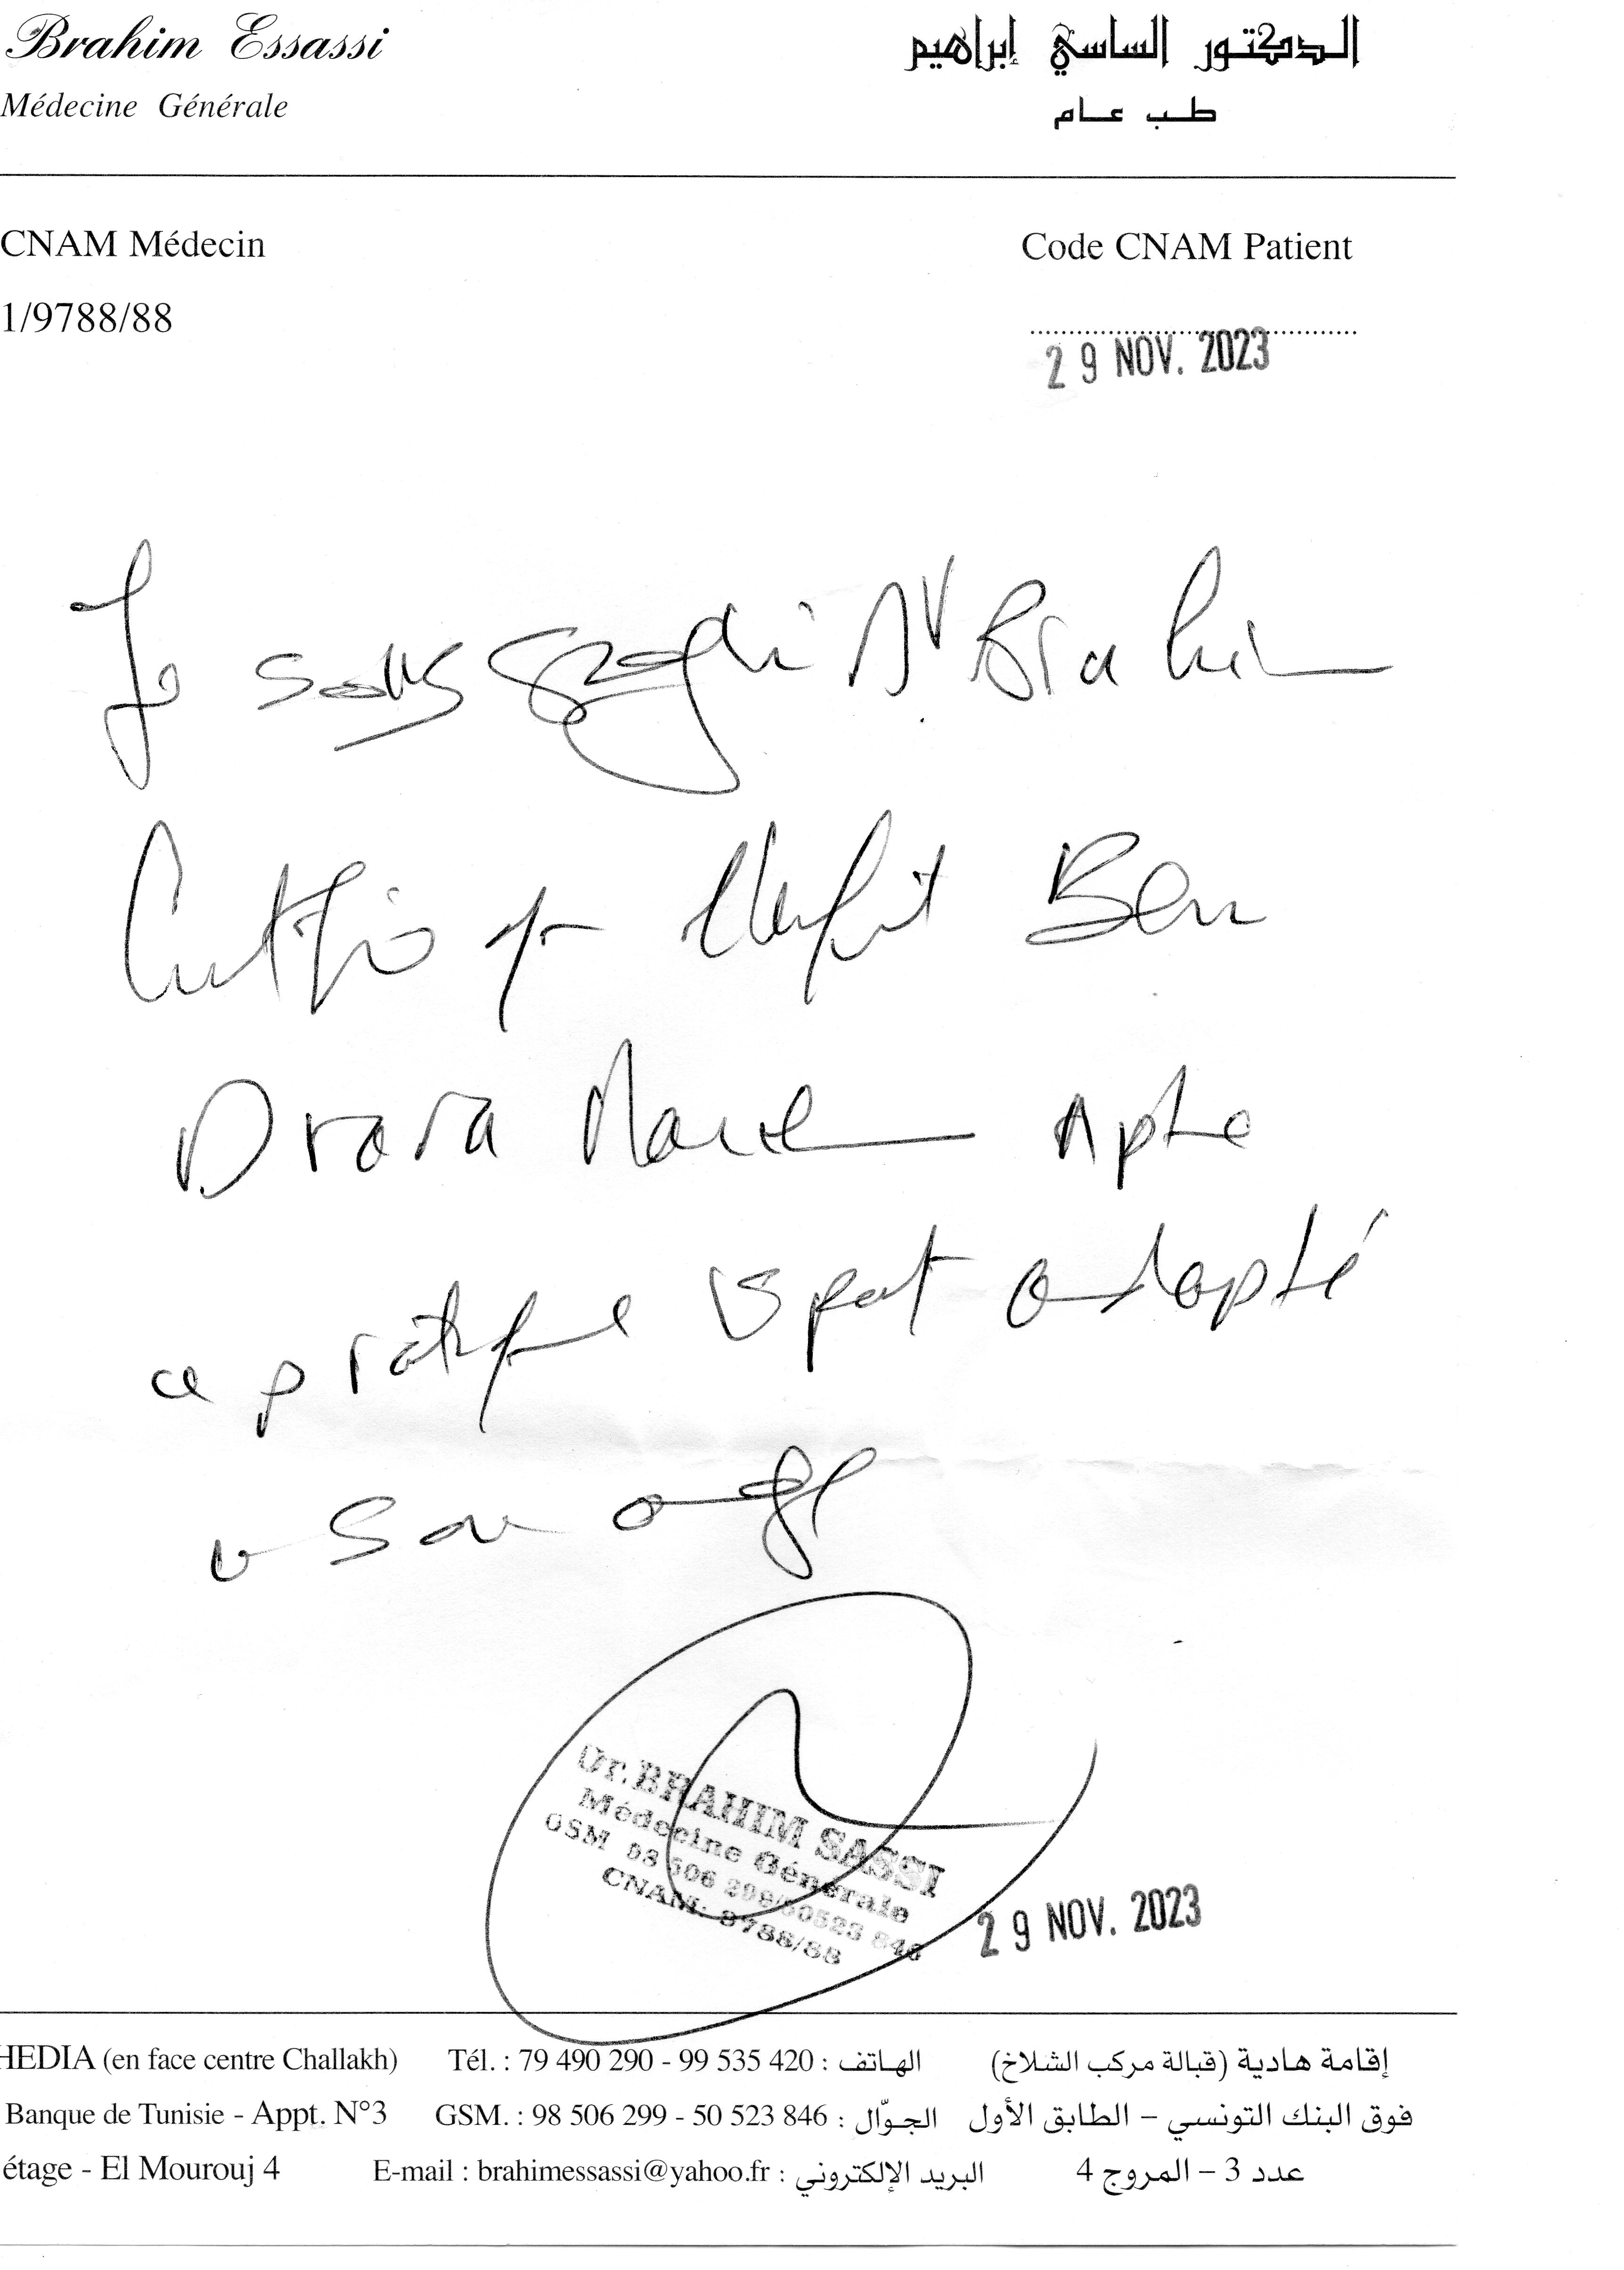 Brahim Essassi
الدكتور الساسي إبراهيم
Médecine Générale
طب عام
CNAM Médecin
Code CNAM Patient
1/9788/88
29 NOV. 2023
Je soussigné Dr Brahim
Certifie que l'enfant Ben
Drara apte
a pratique sport adapté
a son age
Dr. BRAHIM SASSI
Médecine Générale
GSM 98 506 299/50523 846
CNAM: 9788/88
29 NOV. 2023
HEDIA (en face centre Challakh) Tél. : 79 490 290 - 99 535 420 : الهاتف إقامة هادية (قبالة مركب الشلاخ)
Banque de Tunisie - Appt. N°3 GSM. : 98 506 299 - 50 523 846 : الجوّال فوق البنك التونسي – الطابق الأول
étage - El Mourouj 4 E-mail : brahimessassi@yahoo.fr : البريد الإلكتروني عدد 3 – المروج 4